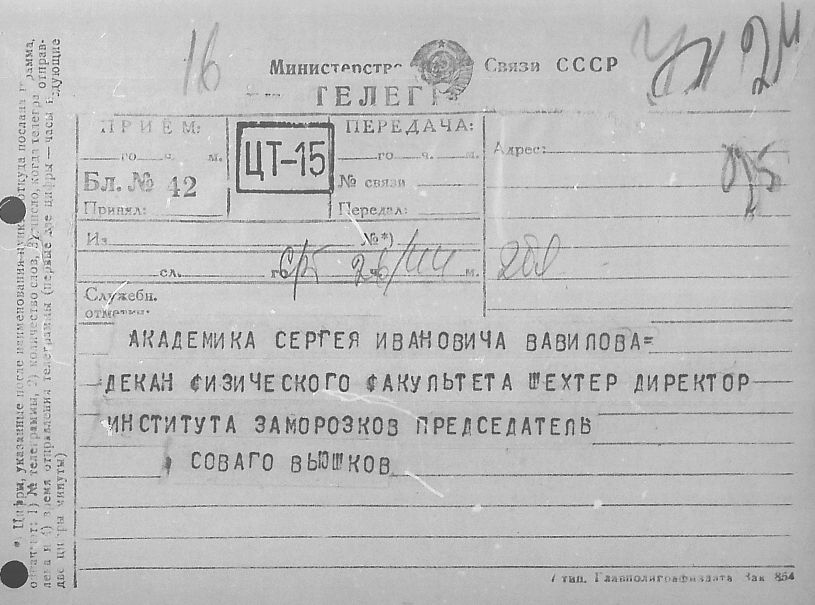 16
Министерство Связи СССР
ТЕЛЕГР
ПРИЕМ:
го ч. м.
Бл. № 42
Принял:
ЦТ-15
ПЕРЕДАЧА:
го ч. м.
№ связи
Передал:
Адрес:
Из №*)
сл. го ч. м.
Служебн.
отметки:
АКАДЕМИКА СЕРГЕЯ ИВАНОВИЧА ВАВИЛОВА=
ДЕКАН ФИЗИЧЕСКОГО ФАКУЛЬТЕТА ШЕХТЕР ДИРЕКТОР
ИНСТИТУТА ЗАМОРОЗКОВ ПРЕДСЕДАТЕЛЬ
СОВАГО ВЬЮШКОВ
7 тип. Главполиграфиздата Зак 854
* Цифры, указанные после наименования пункта, откуда послана грамма,
1) № телеграммы, 2) количество слов, 3) число, когда телегра отправ-
лена и 4) время отправления телеграммы (первые две цифры — часы
две цифры минуты)